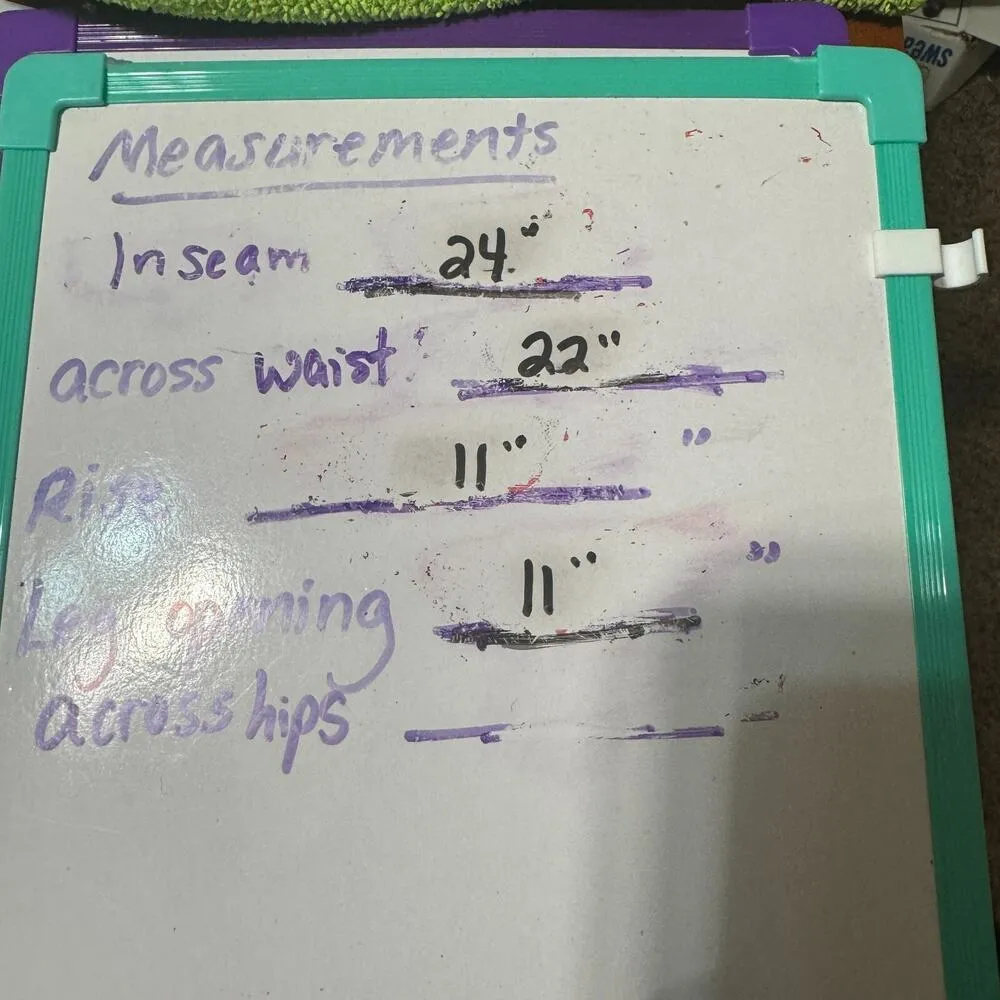 swea
Measurements
Inseam 24."
across waist: 22"
Rise 11" "
Leg opening 11" "
across hips